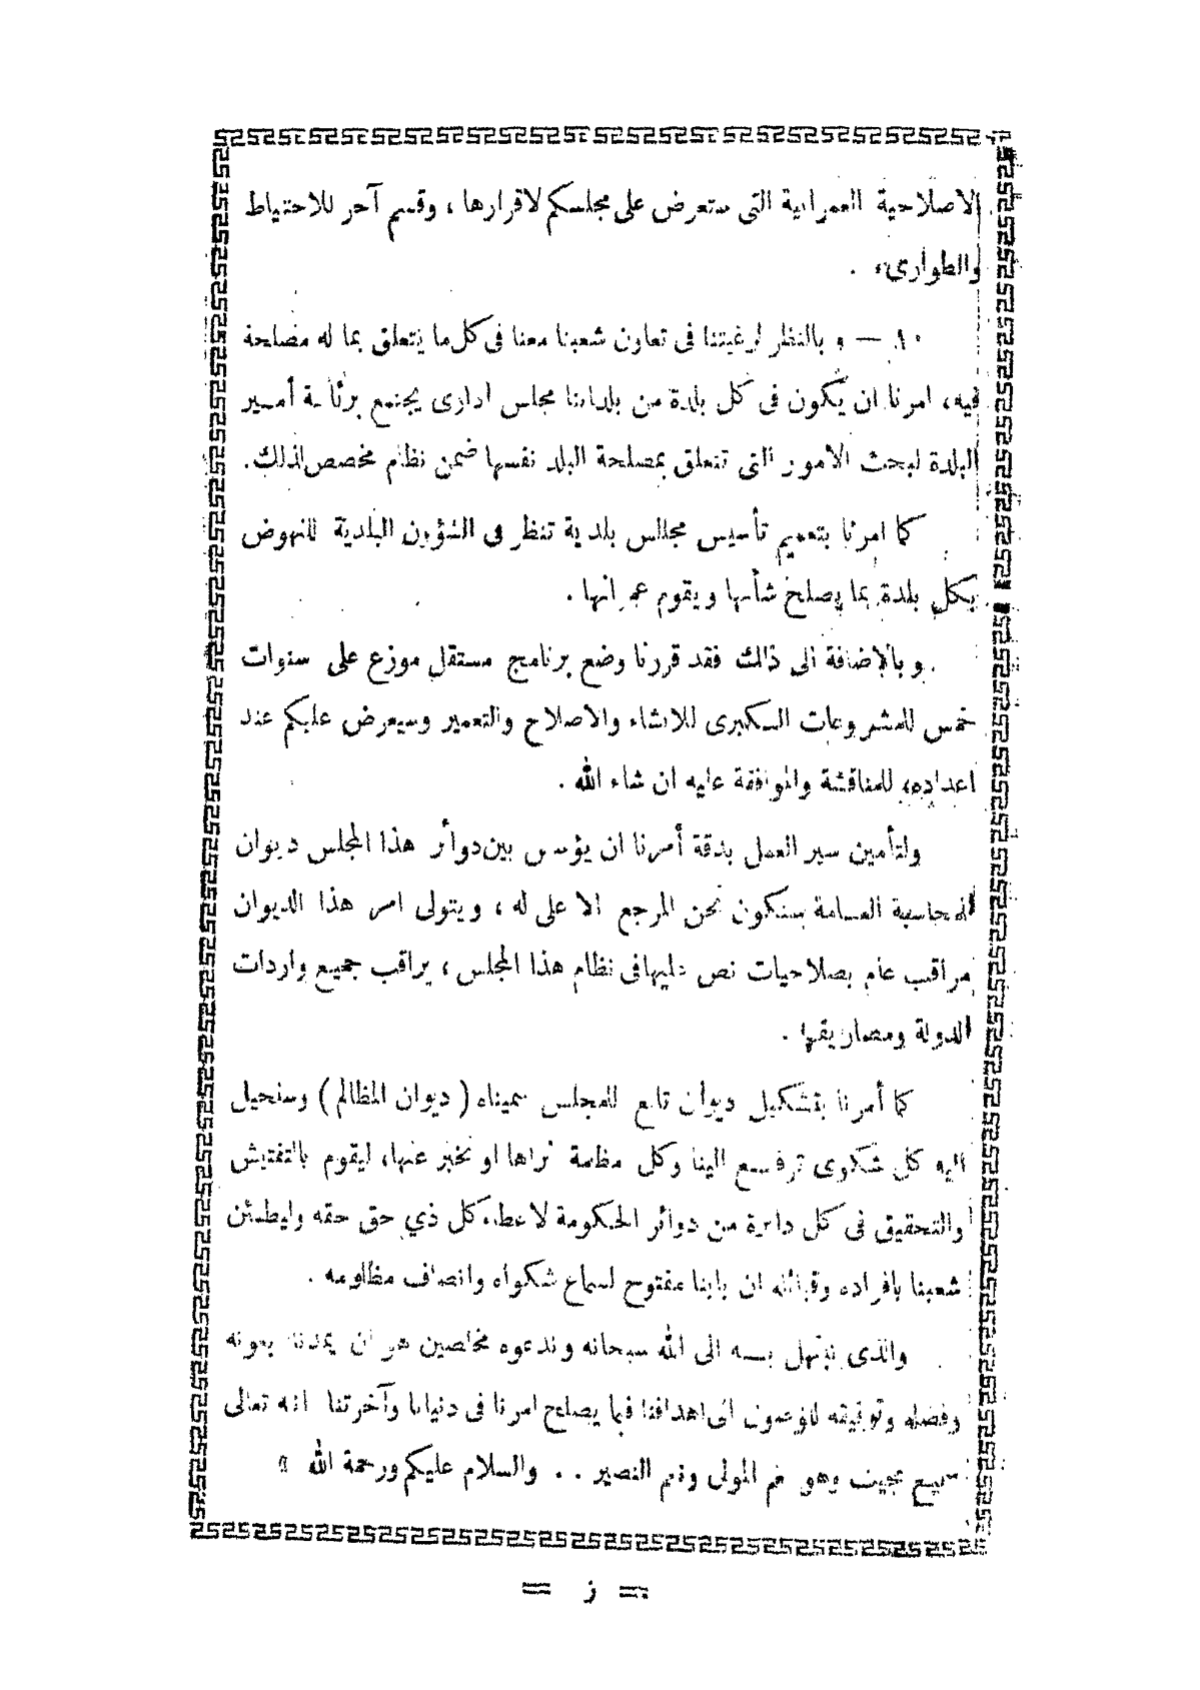 الاصلاحية العمرانية التى ستعرض على مجلسكم لاقرارها ، وقسم آخر للاحتياط
والطوارىء .
١٠ — و بالنظر لرغبتنا فى تعاون شعبنا معنا فى كل ما يتعلق بما له مصلحة
فيه، امرنا ان يكون فى كل بلدة من بلداننا مجلس ادارى يجتمع برئاسة أمير
البلدة لبحث الامور التى تتعلق بمصلحة البلد نفسها ضمن نظام مخصص لذلك.
كما امرنا بتعميم تأسيس مجالس بلدية تنظر فى الشؤون البلدية للنهوض
بكل بلدة بما يصلح شأنها ويقوم عمرانها .
و بالاضافة الى ذالك فقد قررنا وضع برنامج مستقل موزع على سنوات
خمس للمشروعات الكبرى للانشاء والاصلاح والتعمير وسيعرض عليكم عند
اعداده، للمناقشة والموافقة عليه ان شاء الله .
ولتأمين سير العمل بدقة أمرنا ان يؤسس بين دوائر هذا المجلس ديوان
المحاسبة العامة سنكون نحن المرجع الاعلى له ، ويتولى امر هذا الديوان
مراقب عام بصلاحيات نص عليها فى نظام هذا المجلس ، يراقب جميع واردات
الدولة ومصاريفها .
كما أمرنا بتشكيل ديوان تابع للمجلس سميناه ( ديوان المظالم ) وسنحيل
اليه كل شكوى ترفع الينا وكل مظلمة نراها او نخبر عنها، ليقوم بالتفتيش
والتحقيق فى كل دائرة من دوائر الحكومة لاعطاء كل ذي حق حقه وليطمئن
شعبنا بافراده وقبائله ان بابنا مفتوح لسماع شكواه وانصاف مظلومه .
والذى نبتهل به الى الله سبحانه وندعوه مخلصين هو ان يمدنا بعونه
وفضله وتوفيقه للوصول الى اهدافنا فيما يصلح امرنا فى دنيانا وآخرتنا انه تعالى
سميع مجيب وهو نعم المولى ونعم النصير . . والسلام عليكم ورحمة الله
= ز =